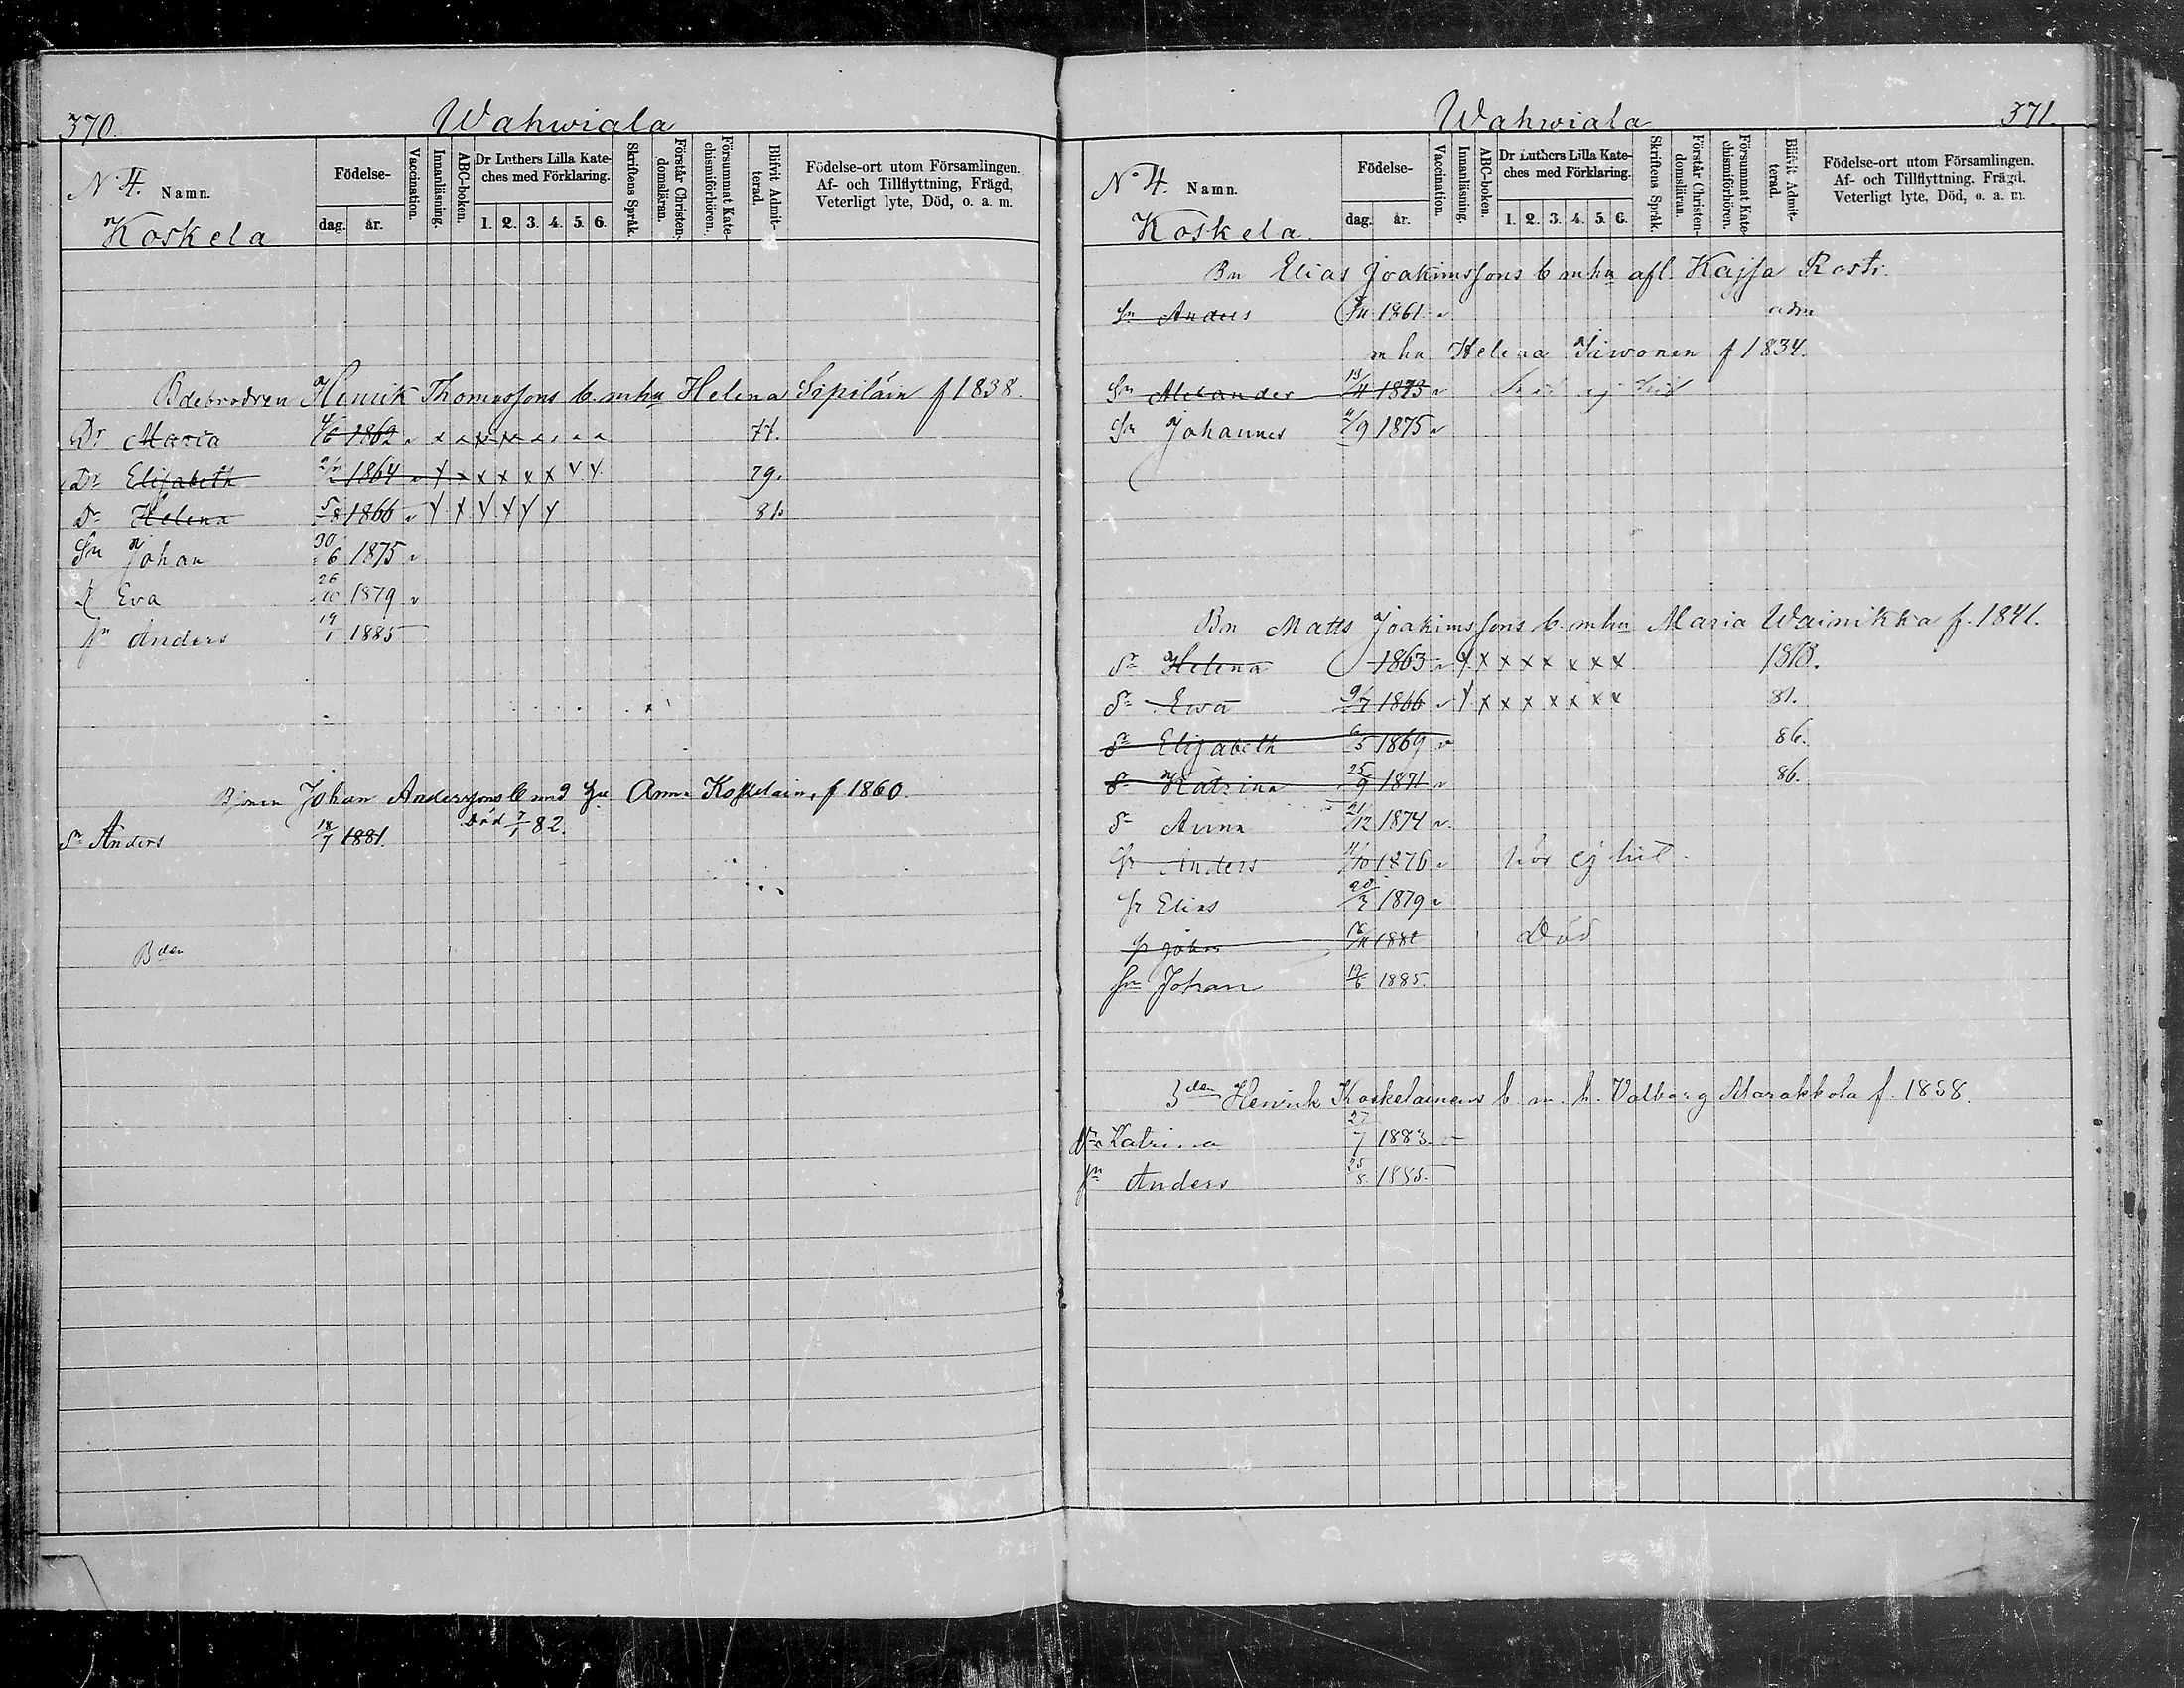 370. Wahwiala
N 4. Namn.
Koskela
Födelse-
dag. år.
Vaccination.
Innanläsning.
ABC-boken.
Dr Luthers Lilla Kate-
ches med Förklaring.
1. 2. 3. 4. 5. 6.
Skriftens Språk.
Förstår Christen-
domsläran.
Försummat Kate-
chismiförhören.
Blifvit Admit-
terad.
Födelse-ort utom Församlingen.
Af- och Tillflyttning, Frägd,
Veterligt lyte, Död, o. a. m.
Bdebrodren Henrik Thomassons b. mhu Helena Sipiläin f 1838.
Dr Maria 4/6 1862 77.
Dr Elisabeth 1864 v x x x x x x v v 79.
Dr Helena 5/8 1866 81.
Sn Johan 30/6 1875 v
Eva 26/10 1879 v
Sn Anders 19/1 1885
Johan Anderssons b med hu Anna f 1860.
Sn Anders 18/7 1881. Död 7/1 82.
Bden
Wahwiala 371.
No 4. Namn.
Koskela.
Födelse-
dag. år.
Vaccination.
Innanläsning.
ABC-boken.
Dr Luthers Lilla Kate-
ches med Förklaring.
1. 2. 3. 4. 5. 6.
Skriftens Språk.
Förstår Christen-
domsläran.
Försummat Kate-
chismiförhören.
Blifvit Admit-
terad.
Födelse-ort utom Församlingen.
Af- och Tillflyttning. Frägd,
Veterligt lyte, Död, o. a. m.
Bn Elias Joakimssons b mhu afl. Kajsa Rosti.
Sn Anders 1861 v adm
mhu Helena f 1834.
Sn Alexander 1873 v
Sn Johannes 4/9 1875 v
Bn Matts Joakimssons b. mhu Maria Wainikka f. 1841.
Dr Helena 1863 v x x x x x x x x 1878.
Dr Ewa 9/7 1866 v x x x x x x x 81.
Dr Elisabeth 6/5 1869 v 86.
Dr Katrina 25/9 1871 v 86.
Dr Anna 21/12 1874 v.
Sn Anders 4/10 1876 v hör ej hit.
Sn Elias 1879 v
Sn Johan 1881 Död
Sn Johan 19/6 1885.
Bden Henrik Koskelainens b m. h. Valborg Marakkola f. 1858.
Dr Katrina 27/7 1883.
Sn Anders 25/8 1885.